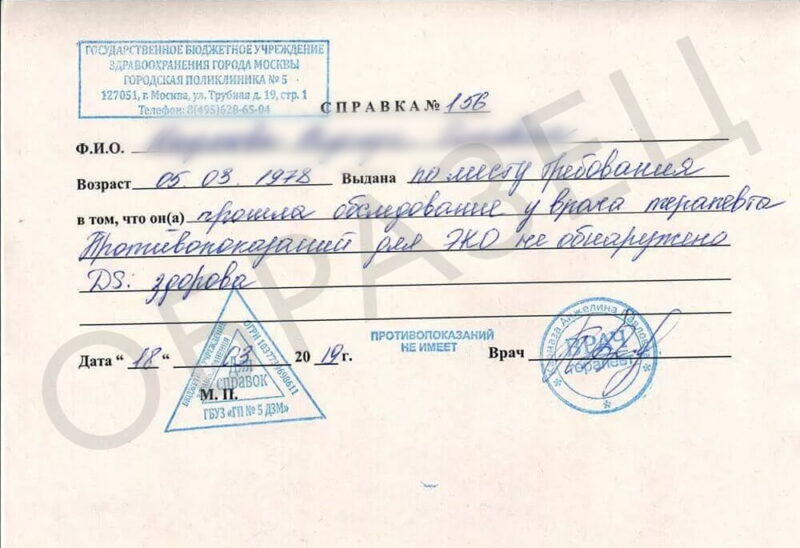 ГОСУДАРСТВЕННОЕ БЮДЖЕТНОЕ УЧРЕЖДЕНИЕ
ЗДРАВООХРАНЕНИЯ ГОРОДА МОСКВЫ
ГОРОДСКАЯ ПОЛИКЛИНИКА № 5
127051, г. Москва, ул. Трубная д. 19, стр. 1
Телефон: 8(495)628-65-04
СПРАВКА № 156
Ф.И.О.
Возраст 05.03.1978 Выдана по месту требования
в том, что он(а) прошла обследование у врача терапевта
Противопоказаний для ЭКО не обнаружено
DS: здорова
ОБРАЗЕЦ
ПРОТИВОПОКАЗАНИЙ
НЕ ИМЕЕТ
Дата “ 18 “ 03 2019 г. Врач
ВРАЧ
терапевт
Анжелина
для
справок
М. П.
ГБУЗ «ГП № 5 ДЗМ»